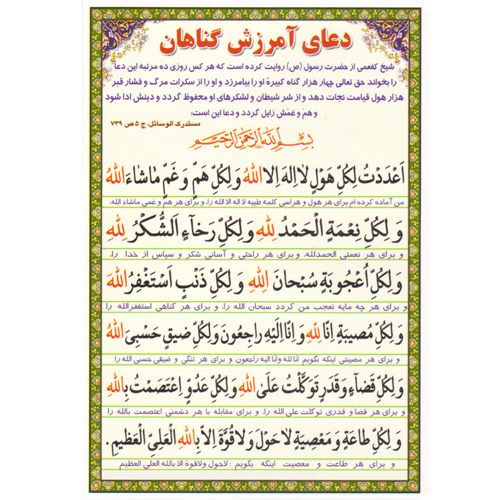 دعای آمرزش گناهان
شیخ کفعمی از حضرت رسول (ص) روایت کرده است که هر کس روزی ده مرتبه این دعا
را بخواند حق تعالی چهار هزار گناه کبیرهٔ او را بیامرزد و او را از سکرات مرگ و فشار قبر
هزار هول قیامت نجات دهد و از شر شیطان و لشکرهای او محفوظ گردد و دینش ادا شود
و هم و غمش زایل گردد و دعا این است:
مستدرک الوسائل، ج ۵ ص ۷۳۹
بسم الله الرحمن الرحیم
اَعْدَدْتُ لِکُلِّ هَوْلٍ لا اِلهَ اِلاَّ اللهُ وَ لِکُلِّ هَمٍّ وَ غَمٍّ ماشاءَ اللهُ
من آماده کرده ام برای هر هول و هراسی کلمه طیبه لا اله الا الله را، و برای هر هم و غمی ماشاء الله،
وَ لِکُلِّ نِعْمَةٍ اَلْحَمْدُ لِلّهِ وَ لِکُلِّ رَخآءٍ اَلشُّکْرُ لِلّهِ
و برای هر نعمتی الحمدلله، و برای هر راحتی و آسانی شکر و سپاس از خدا را،
وَ لِکُلِّ اُعْجُوبَةٍ سُبْحانَ اللهِ وَ لِکُلِّ ذَنْبٍ اَسْتَغْفِرُ اللهَ
و برای هر چه مایه تعجب من گردد سبحان الله را، و برای هر گناهی استغفرالله را
وَ لِکُلِّ مُصیبَةٍ اِنّا لِلّهِ وَ اِنّا اِلَیْهِ راجِعُونَ وَ لِکُلِّ ضیقٍ حَسْبِیَ اللهُ
و برای هر مصیبتی اینکه بگویم انا لله وانا الیه راجعون و برای هر تنگی و ضیقی حسبی الله را
وَ لِکُلِّ قَضآءٍ وَ قَدَرٍ تَوَکَّلْتُ عَلَی اللهِ وَ لِکُلِّ عَدُوٍّ اِعْتَصَمْتُ بِاللهِ
و برای هر قضا و قدری توکلت علی الله را، و برای مقابله با هر دشمنی اعتصمت بالله را
وَ لِکُلِّ طاعَةٍ وَ مَعْصِیَةٍ لا حَوْلَ وَ لا قُوَّةَ اِلاّ بِاللهِ الْعَلِیِّ الْعَظیمِ.
و برای هر طاعت و معصیت اینکه بگویم : لاحول ولاقوة الا بالله العلی العظیم